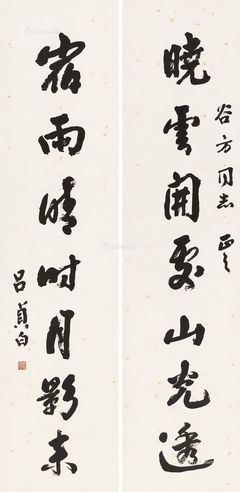 谷方同志 正之
曉雲開處山光透
宿雨晴時月影来
吕貞白